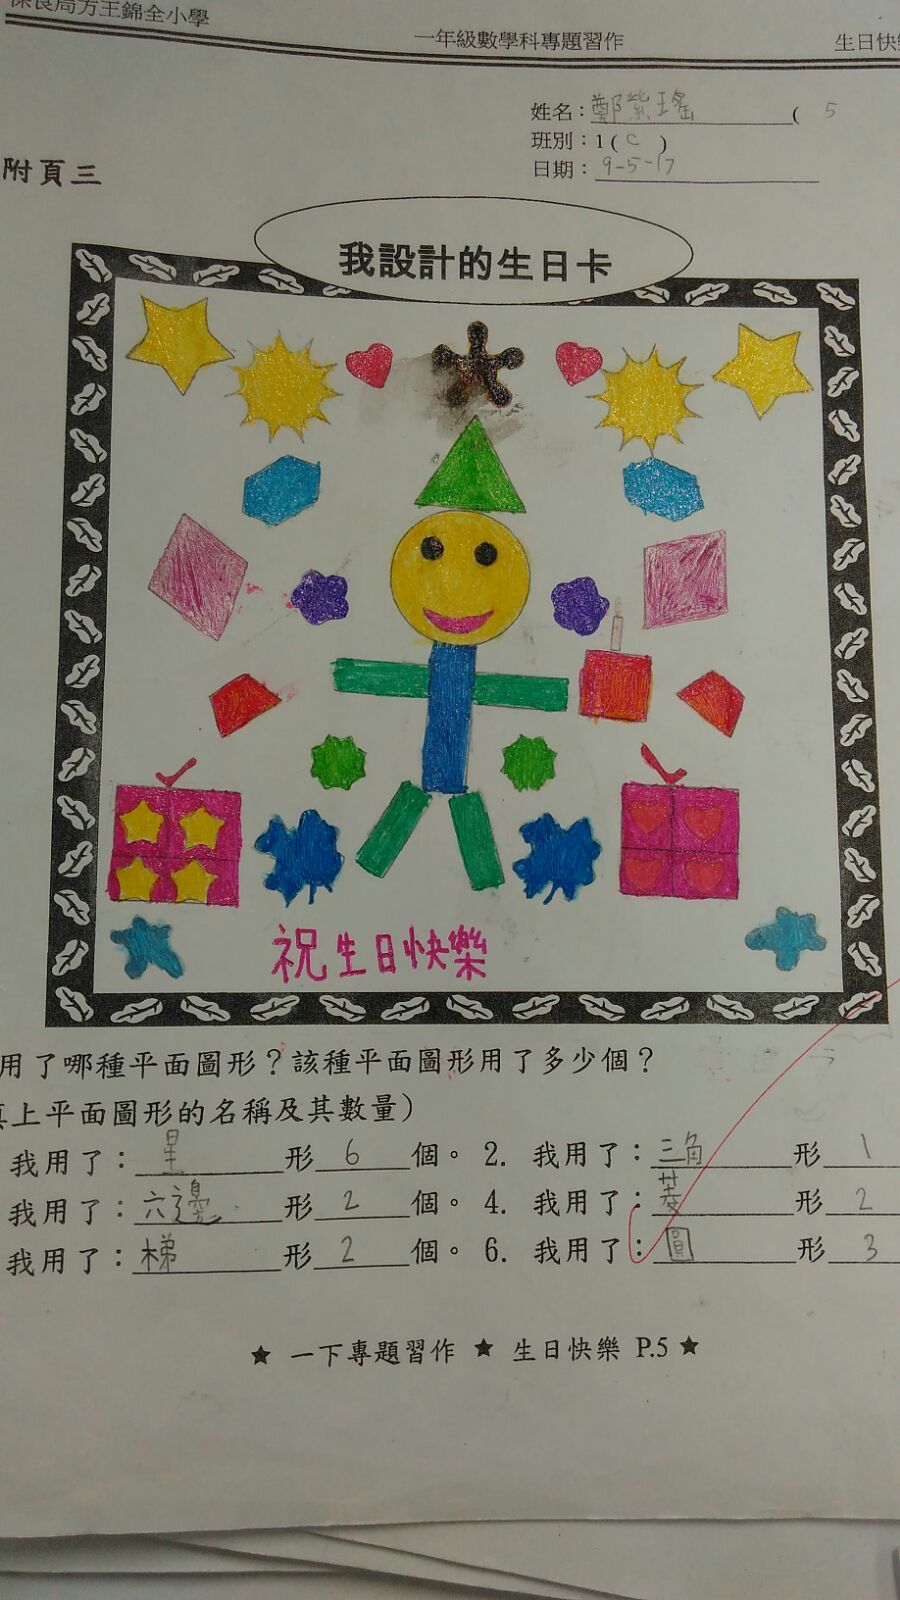 保良局方王錦全小學
一年級數學科專題習作
生日快樂
姓名：鄭紫瑤 ( 5
班別：1 ( C )
日期：9-5-17
附頁三
我設計的生日卡
祝生日快樂
用了哪種平面圖形？該種平面圖形用了多少個？
填上平面圖形的名稱及其數量）
我用了：星形 6 個。 2. 我用了：三角形 1
我用了：六邊形 2 個。 4. 我用了：菱形 2
我用了：梯形 2 個。 6. 我用了：圓形 3
★ 一下專題習作 ★ 生日快樂 P.5 ★